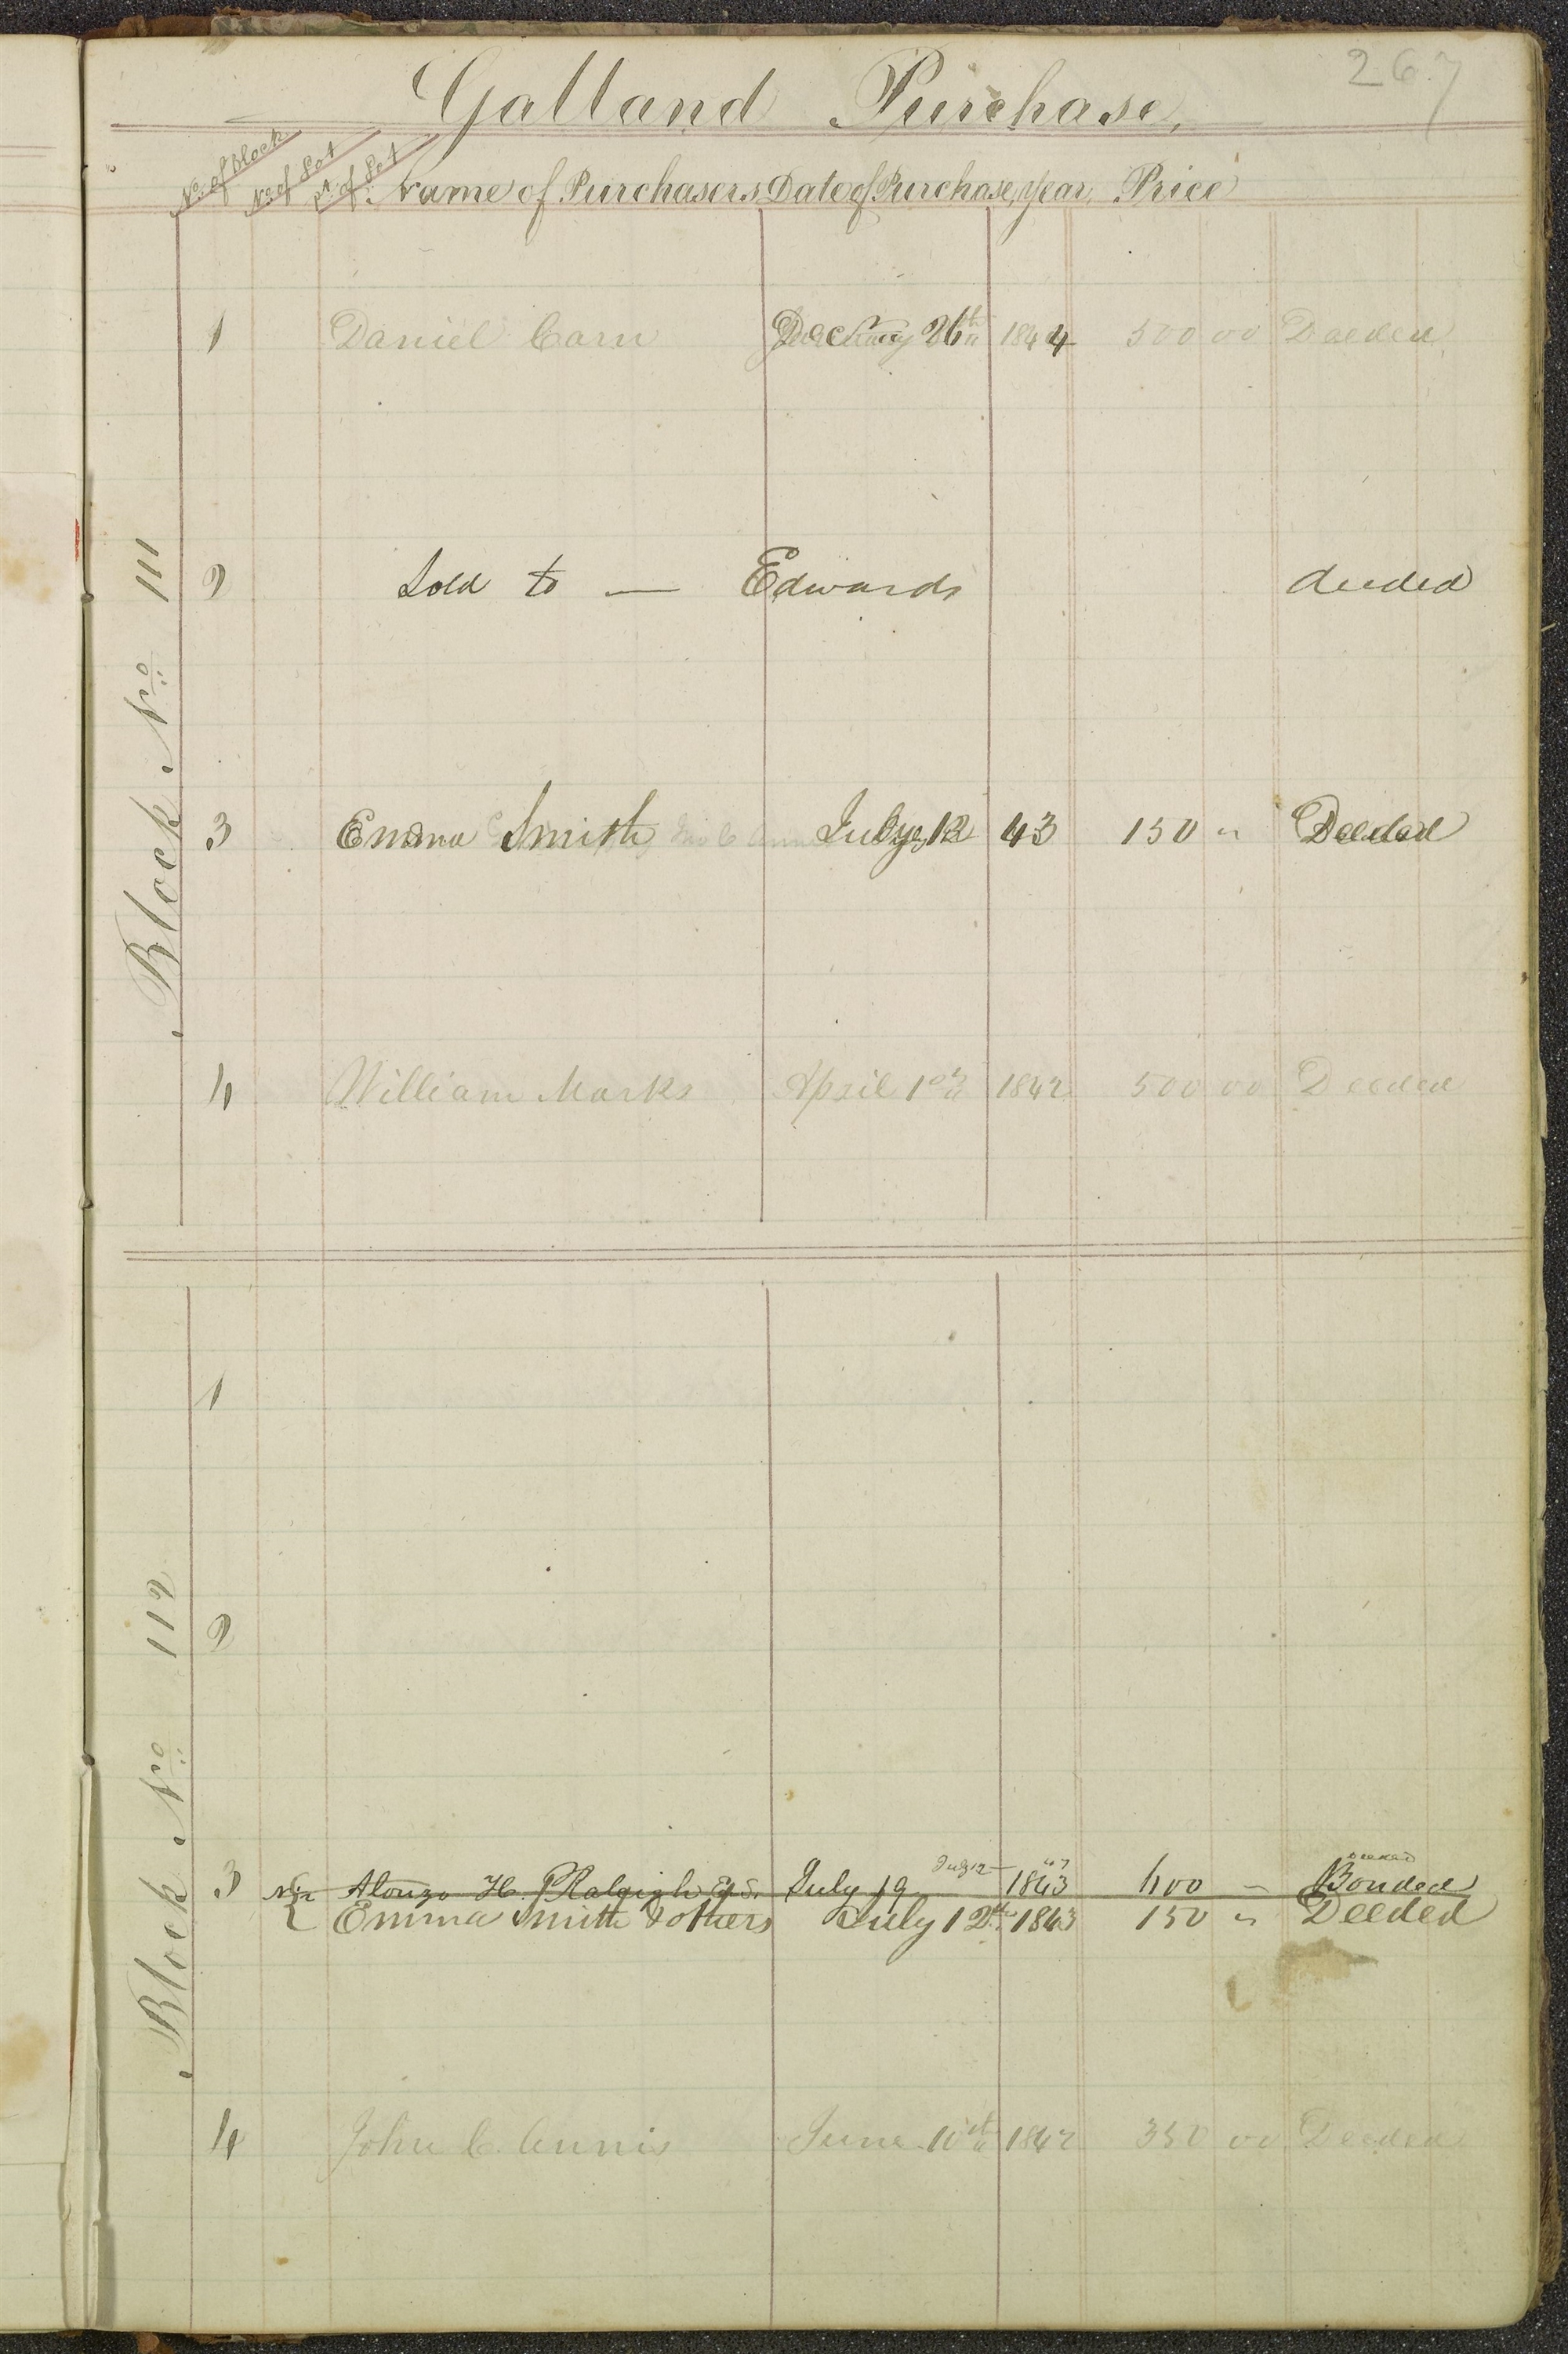 267
Galland Purchase,
No. of Block No. of Lot Pt. of Lot Name of Purchasers Date of Purchase, Year, Price
Block No. 111
1 Daniel Carn Dec 26th 1844 500 00 Deeded
2 Sold to — Edwards deeded
3 Emma Smith July 12 43 150 " Deeded
4 William Marks April 1st 1842 500 00 Deeded
Block No. 112
1
2
July 12 — "43 Deeded
3 N½ Alonzo H. Raleigh July 19 1843 400 – Bonded
Emma Smith & others July 12th 1843 150 " Deeded
4 John C. Annis June 1842 350 00 Deeded